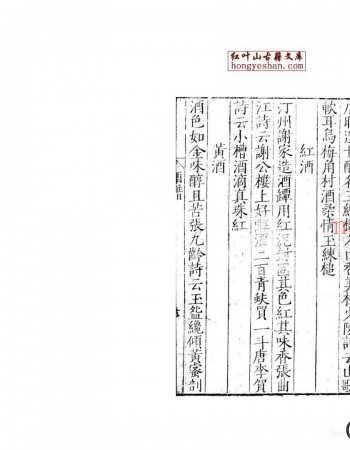 红叶山古籍文库
hongyeshan.com
軟耳烏梅角村酒柔情玉練槌
紅酒
汀州謝家造酒罈用紅泥封固其色紅其味香張曲
江詩云謝公樓上好醇酒二百青蚨買一斗唐李賀
詩云小槽酒滴真珠紅
黃酒
酒色如金味醇且苦張九齡詩云玉盌纔傾黃蜜剖